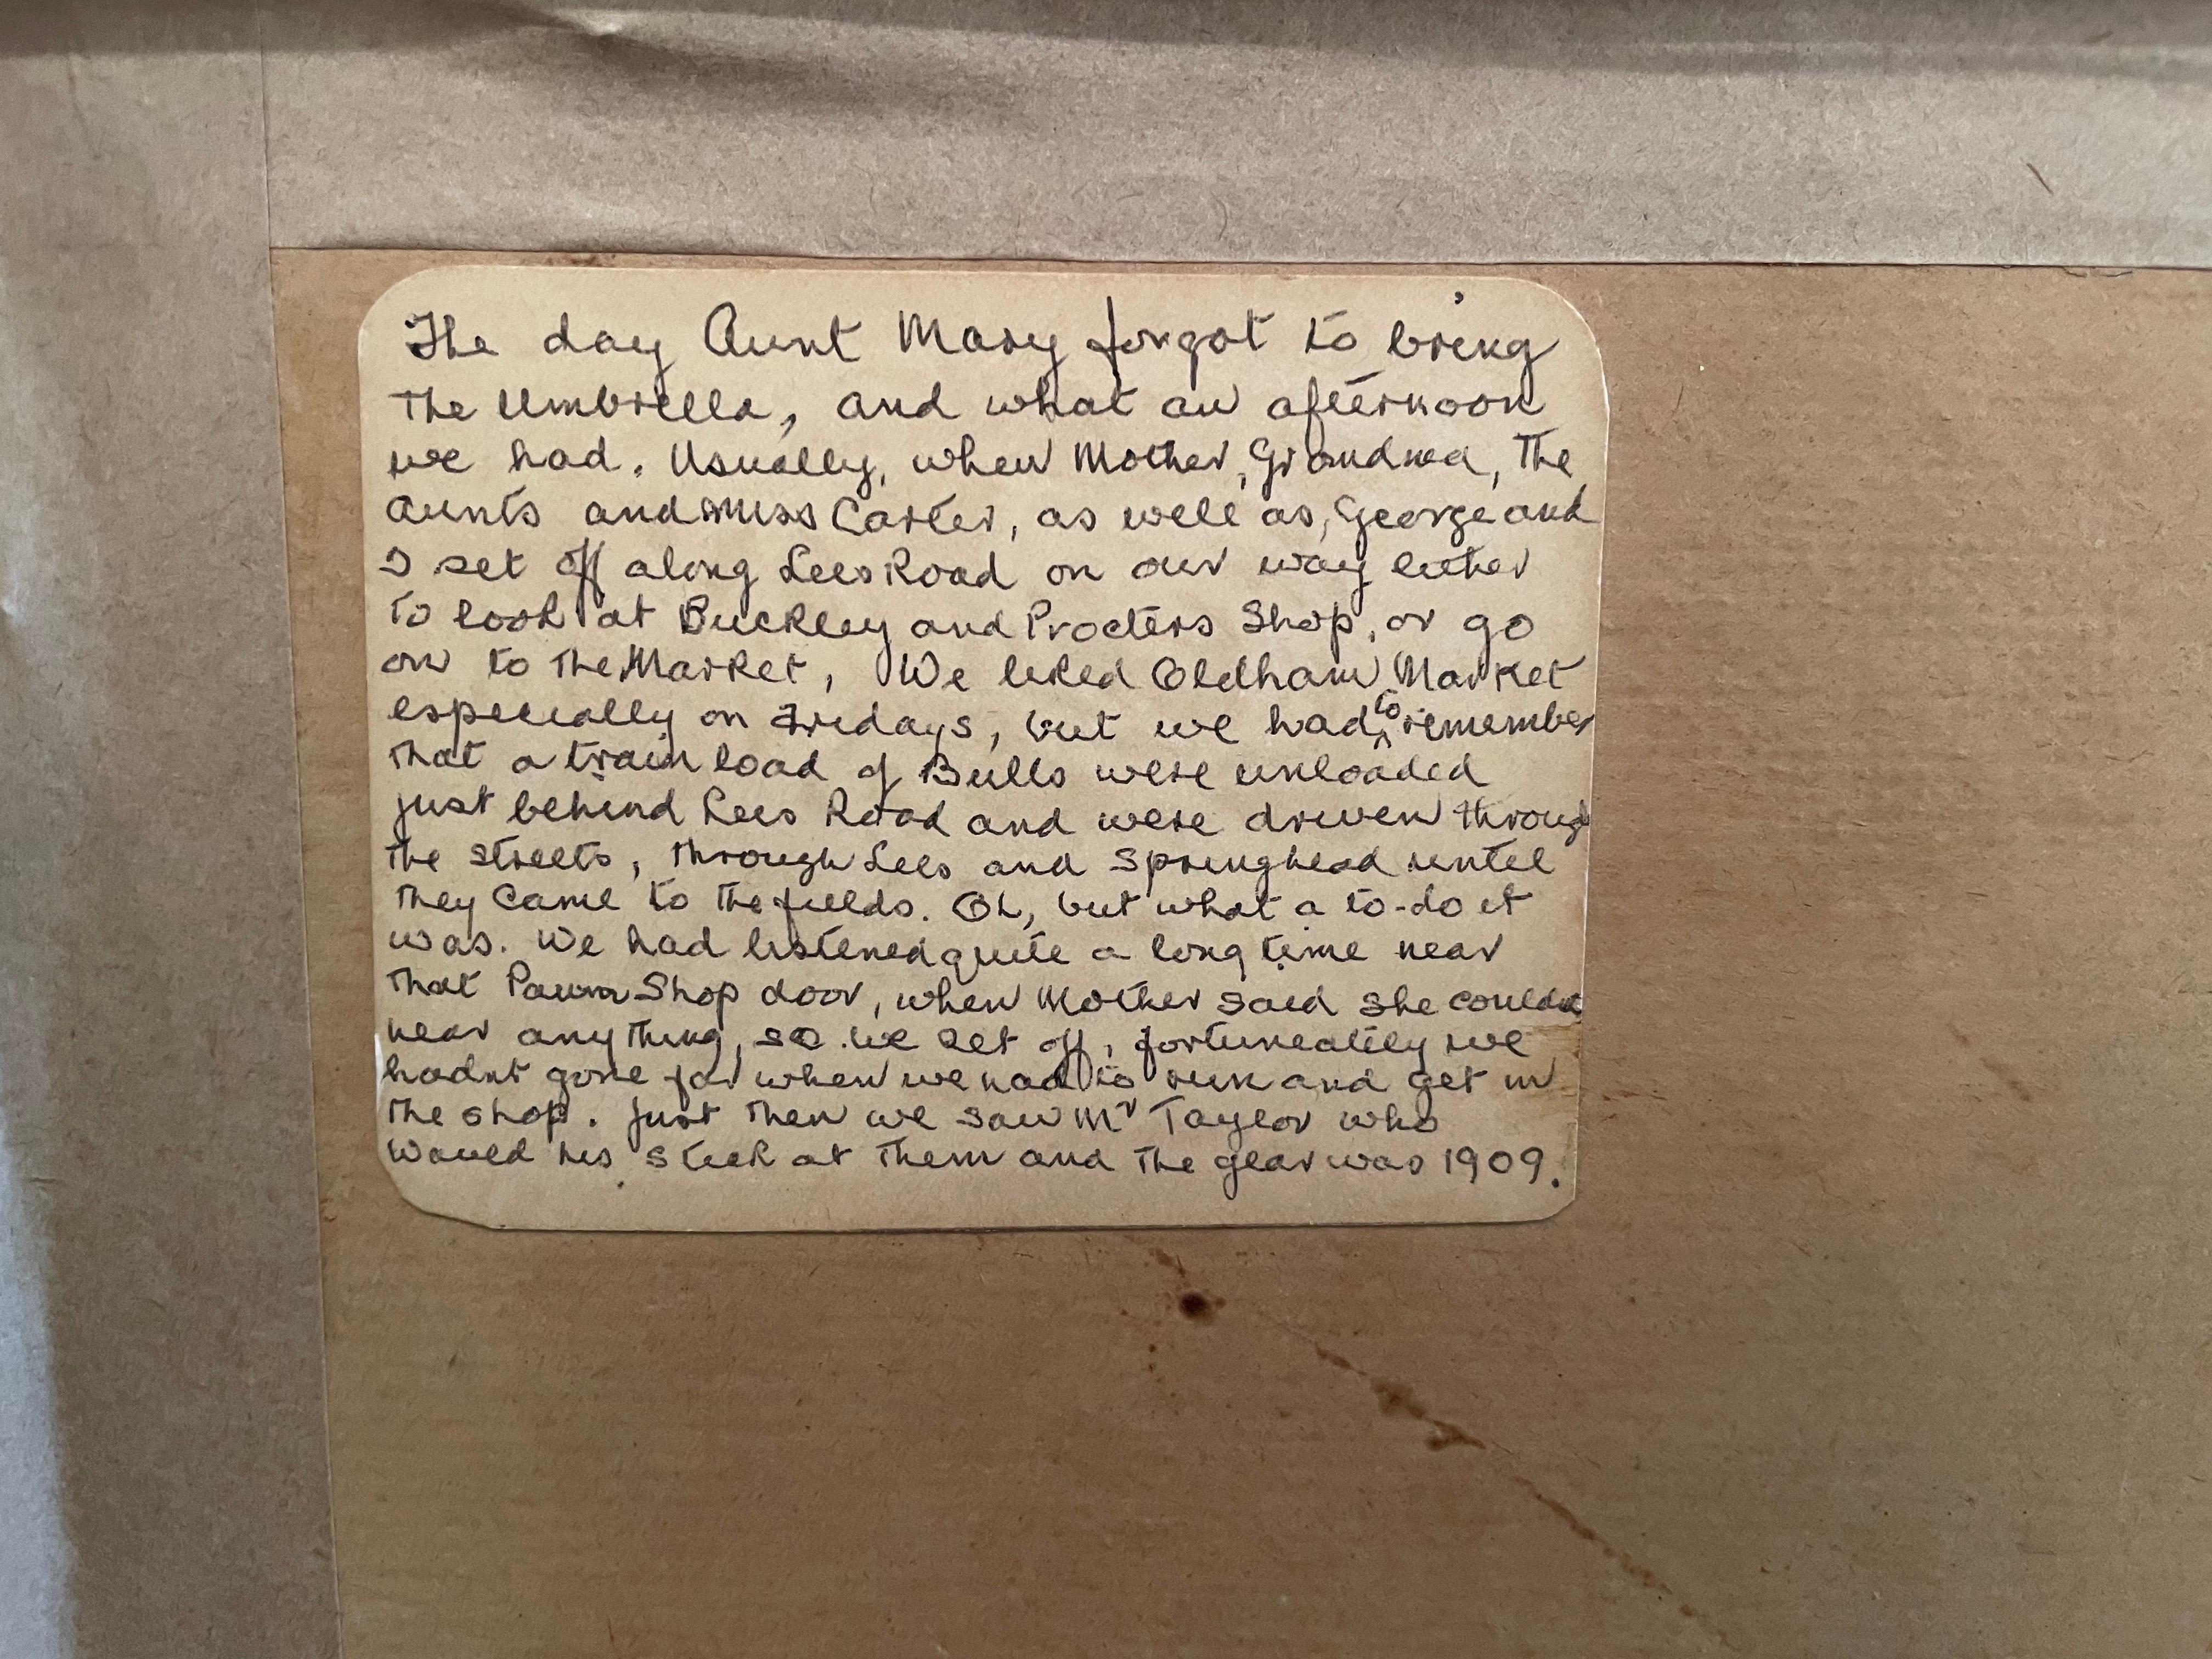 The day Aunt Mary forgot to bring
the Umbrella, and what an afternoon
we had. Usually, when Mother, Grandma, the
Aunts and Miss Carter, as well as, George and
I set off along Lees Road on our way either
to look at Buckley and Procters Shop, or go
on to the Market, We liked Oldham Market
especially on Fridays, but we had to remember
that a train load of Bulls were unloaded
just behind Lees Road and were driven through
the streets, through Lees and Springhead until
they came to the fields. Oh, but what a to-do it
was. We had listened quite a long time near
that Pawn Shop door, when Mother said she couldnt
hear anything, so we set off, fortuneatily we
hadnt gone far when we had to run and get in
the shop. Just then we saw Mr Taylor who
waved his stick at them and the year was 1909.